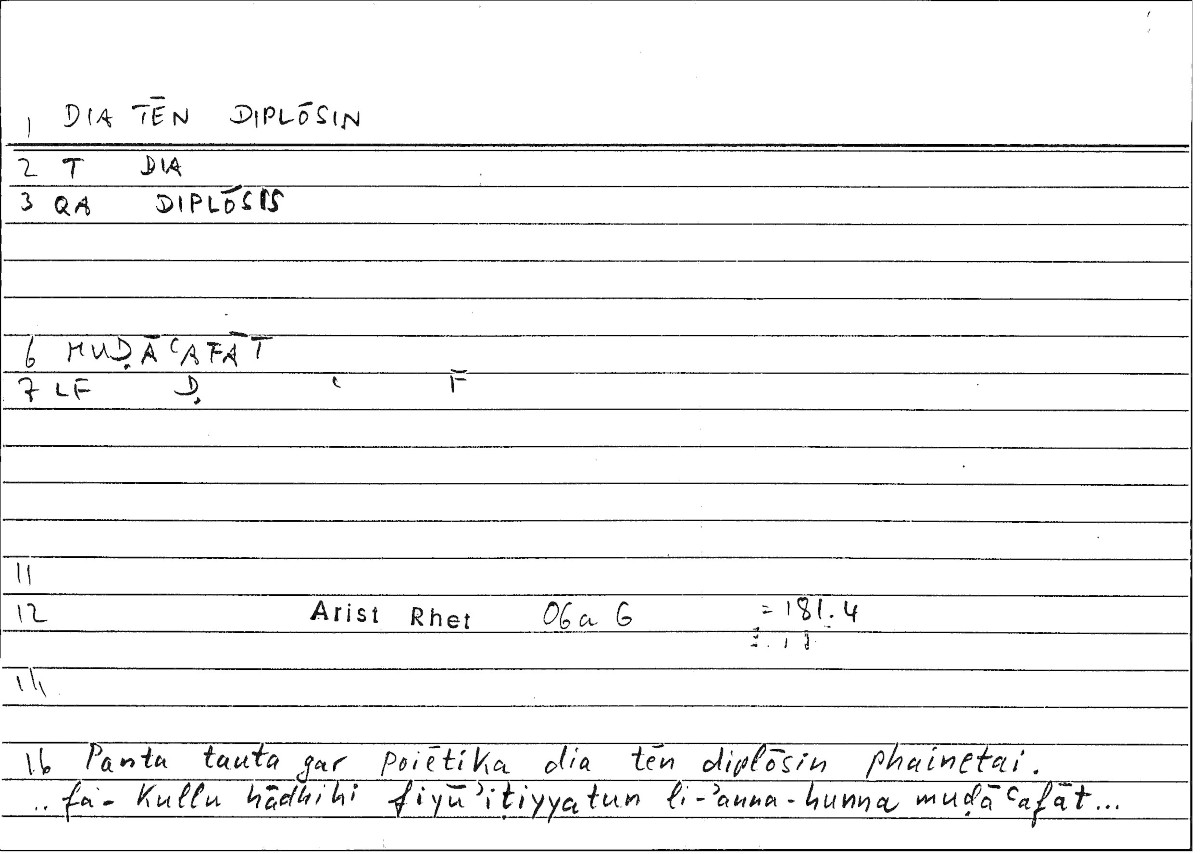 1 DIA TĒN DIPLŌSIN
2 T DIA
3 QA DIPLŌSIS
6 MUḌĀʿAFĀT
7 LF Ḍ ʿ F̄
11
12 Arist Rhet 06a 6 = 181.4
14
16 Panta tauta gar poiētika dia tēn diplōsin phainetai.
.. fa- Kullu hādhihi fiyū'iṭiyyatun li-'anna-hunna muḍāʿafāt...